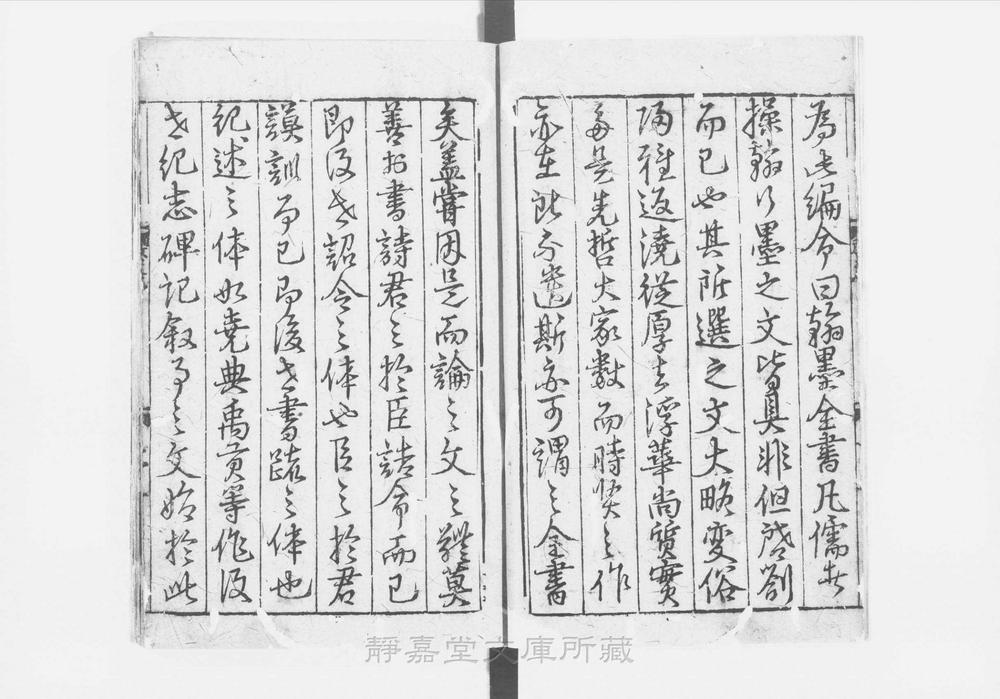 為此編命曰翰墨全書凡儒者
操翰行墨之文皆具非但啓劄
而已也其所選之文大略變俗
歸雅返澆從厚去浮華尚質實
多是先哲大家數而時賢之作
亦在所不遺斯亦可謂之全書
矣盖甞因是而論之文之體莫
善於書詩君之於臣誥命而已
即後世詔令之体也臣之於君
謨訓而已即後世書䟽之体也
紀述之体如堯典禹貢等作後
世紀志碑記叙事之文始於此
靜嘉堂文庫所藏